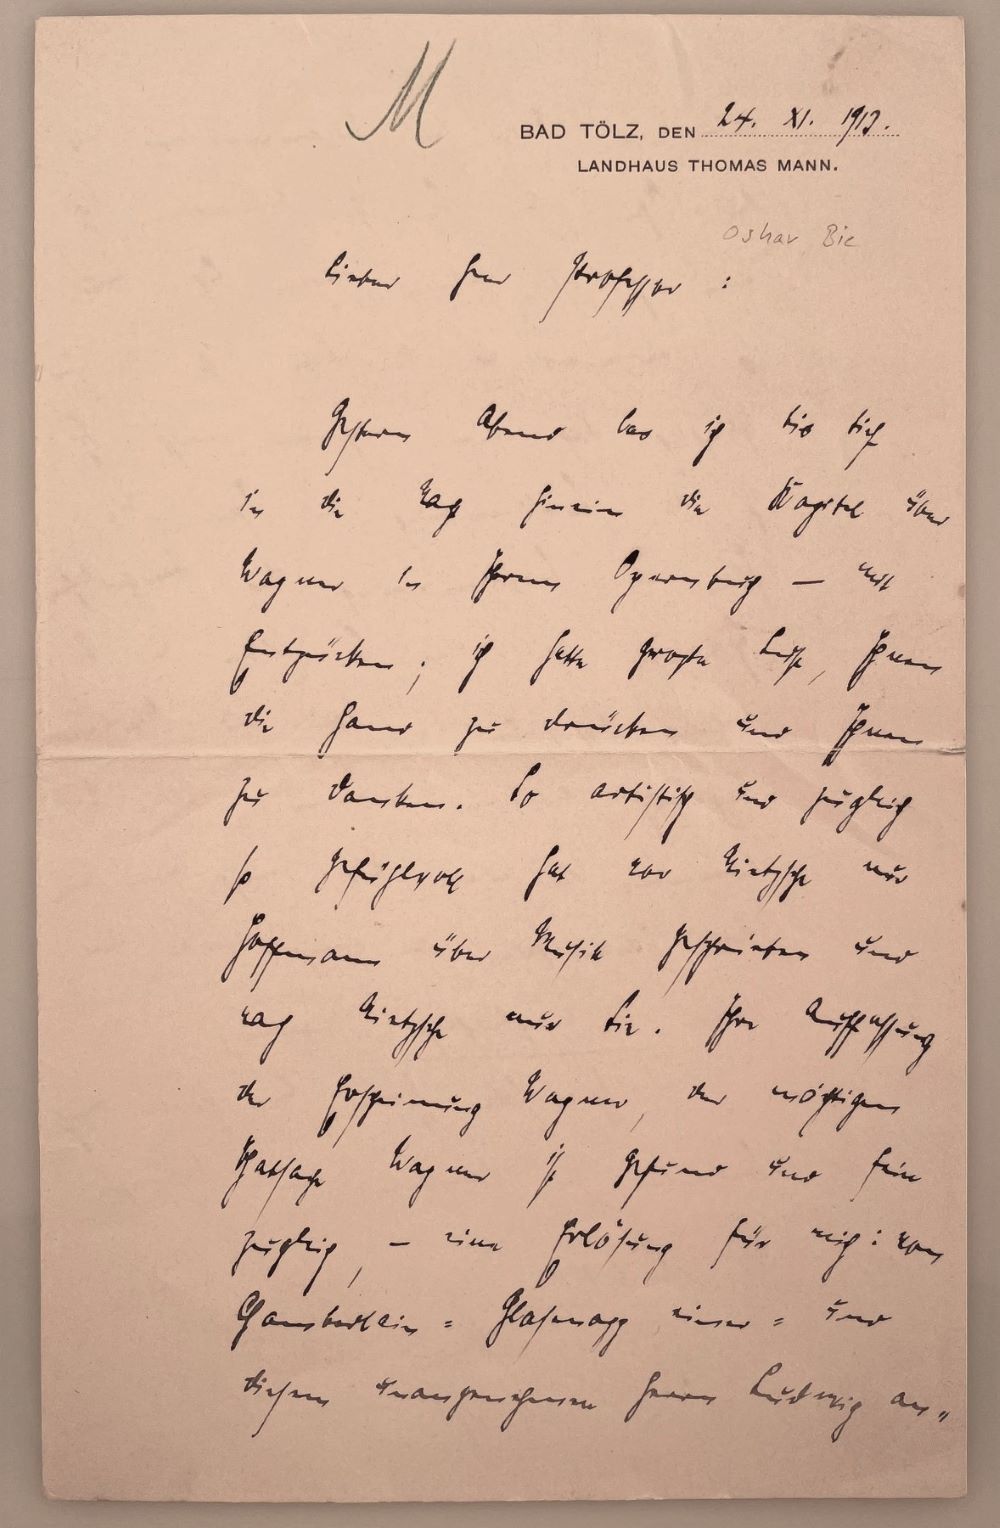 M
BAD TÖLZ, DEN 24. XI. 1913.
LANDHAUS THOMAS MANN.
Oskar Bie
Lieber Herr Professor:
Gestern Abend las ich bis tief
in die Nacht hinein die Kapitel über
Wagner in Ihrem Opernbuch – mit
Entzücken; ich hatte große Lust, Ihnen
die Hand zu drücken und Ihnen
zu danken. So artistisch und zugleich
so gefühlvoll hat vor Nietzsche nur
Hoffmann über Musik geschrieben und
nach Nietzsche nur Sie. Ihre Auffassung
der Erscheinung Wagner, der mächtigen
Thatsache Wagner ist gesund und fein
zugleich, – eine Erlösung für mich: vom
Chamberlain- Glasenapp einer- und
diesem unangenehmen Herrn Ludwig an„